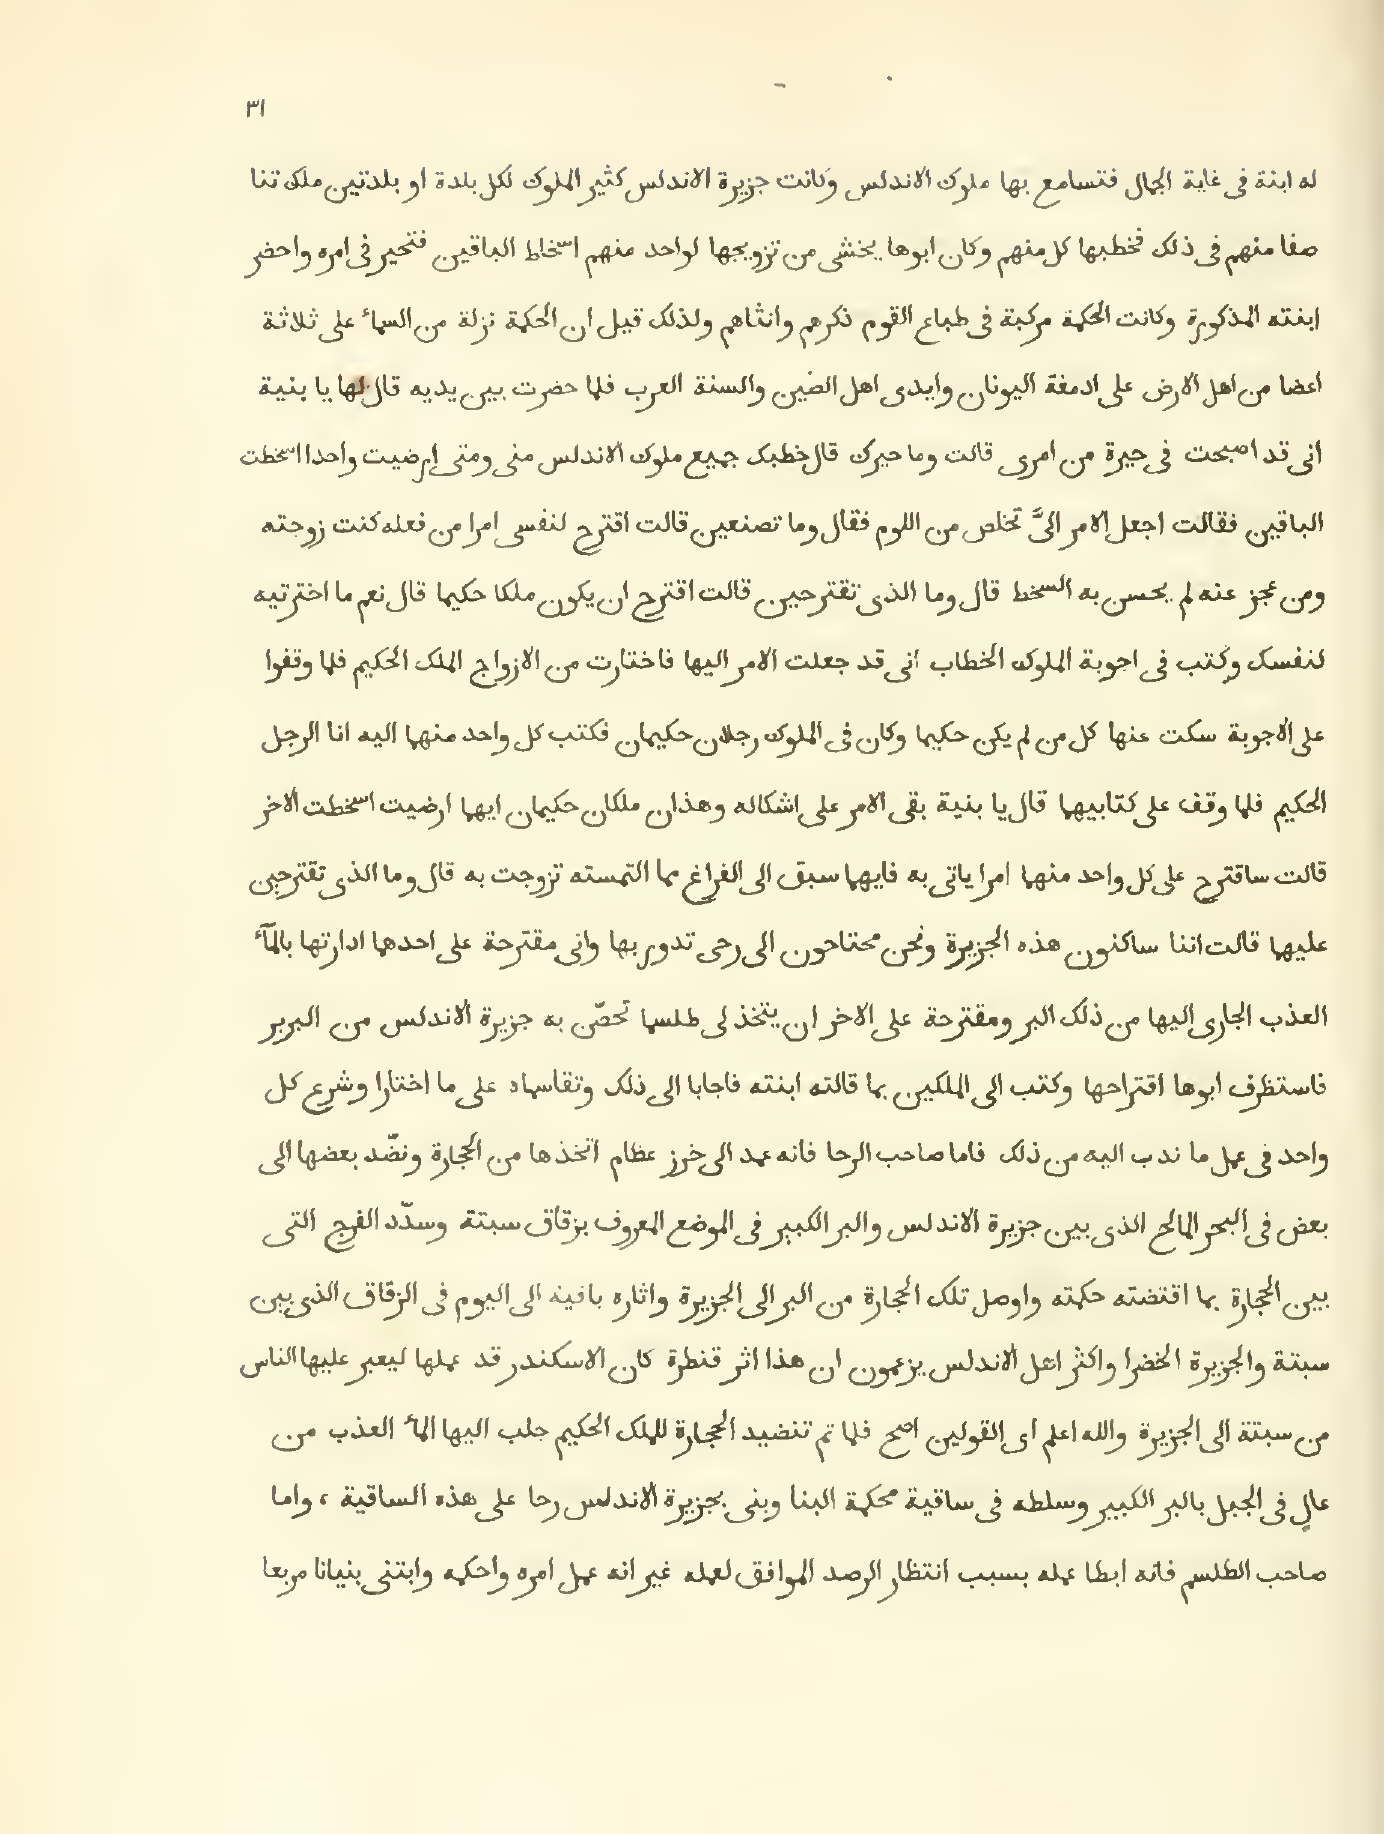 ٣١
له ابنة فى غاية الجمال فتسامع بها ملوك الاندلس وكانت جزيرة الاندلس كثير الملوك لكل بلدة او بلدتين ملك تنا
صفا منهم فى ذلك فخطبها كل منهم وكان ابوها يخشى من تزويجها لواحد منهم اسخاط الباقين فتحير فى امره واحضر
ابنته المذكورة وكانت الحكمة مركبة فى طباع القوم ذكرهم وانثاهم ولذلك قيل ان الحكمة نزلة من السمأ على ثلاثة
اعضا من اهل الارض على ادمغة اليونان وايدى اهل الصين والسنة العرب فلما حضرت بين يديه قال لها يا بنية
انى قد اصبحت فى حيرة من امرى قالت وما حيرك قال خطبك جميع ملوك الاندلس منى ومتى ارضيت واحدا اسخطت
الباقين فقالت اجعل الامر الىَّ تخلص من اللوم فقال وما تصنعين قالت اقترح لنفسى امرا من فعله كنت زوجته
ومن عجز عنه لم يحسن به السخط قال وما الذى تقترحين قالت اقترح ان يكون ملكا حكيما قال نعم ما اخترتيه
لنفسك وكتب فى اجوبة الملوك الخطاب انى قد جعلت الامر اليها فاختارت من الازواج الملك الحكيم فلما وقفوا
على الاجوبة سكت عنها كل من لم يكن حكيما وكان فى الملوك رجلان حكيمان فكتب كل واحد منهما اليه انا الرجل
الحكيم فلما وقف على كتابيهما قال يا بنية بقى الامر على اشكاله وهذان ملكان حكيمان ايهما ارضيت اسخطت الاخر
قالت ساقترح على كل واحد منهما امرا ياتى به فايهما سبق الى الفراغ مما التمسته تزوجت به قال وما الذى تقترحين
عليهما قالت اننا ساكنون هذه الجزيرة ونحن محتاحون الى رحى تدور بها وانى مقترحة على احدهما ادارتها بالمآٔ
العذب الجارى اليها من ذلك البر ومقترحة على الاخر ان يتخذ لى طلسما تحصّن به جزيرة الاندلس من البربر
فاستظرف ابوها اقتراحها وكتب الى الملكين بما قالته ابنته فاجابا الى ذلك وتقاسماه على ما اختارا وشرع كل
واحد فى عمل ما ندب اليه من ذلك فاما صاحب الرحا فانه عمد الى خرز عظام اتخذها من الحجارة ونضّد بعضها الى
بعض فى البحر المالح الذى بين جزيرة الاندلس والبر الكبير فى الموضع المعروف بزقاق سبتة وسدّد الفرج التى
بين الحجارة بما اقتضته حكمته واوصل تلك الحجارة من البر الى الجزيرة واثاره باقية الى اليوم فى الزقاق الذى بين
سبتة والجزيرة الخضرا واكثر اهل الاندلس يزعمون ان هذا اثر قنطرة كان الاسكندر قد عملها ليعبر عليها الناس
من سبتة الى الجزيرة والله اعلم اى القولين اصح فلما تم تنضيد الحجارة للملك الحكيم جلب اليها المأ العذب من
عالٍ فى الجبل بالبر الكبير وسلطه فى ساقية محكمة البنا وبنى بجزيرة الاندلس رحا على هذه الساقية ، واما
صاحب الطلسم فانه ابطا عمله بسبب انتظار الرصد الموافق لعمله غير انه عمل امره واحكمه وابتنى بنيانا مربعا